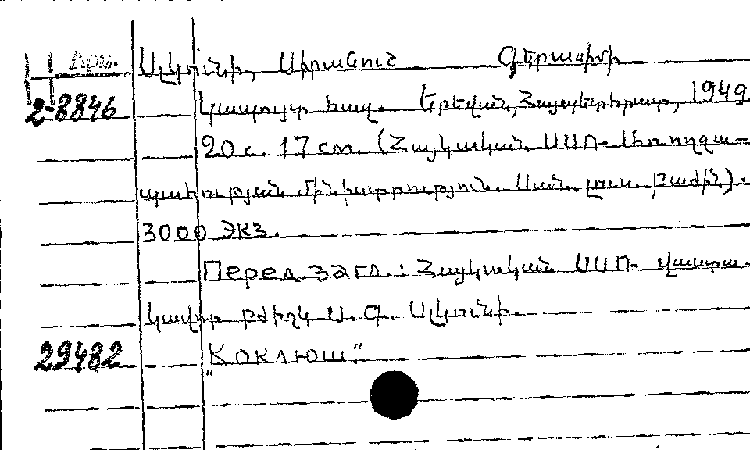 Арм. Ալկունի, Սիրանուշ Գերասիմի
2-8846 Կապույտ հազ. Երեվան, Հայպետհրատ, 1949
20 с. 17 см. (Հայկական ՍՍՌ Առողջա-
պահության մինիստրություն. Սան. լուս. բաժին).
3000 экз.
Перед загл.: Հայկական ՍՍՌ վաստա-
կավոր բժիշկ Ս. Գ. Ալկունի.
29482 "Коклюш"